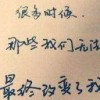 很多时候，
那些我们无法
最终改变了我